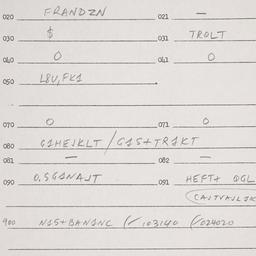 020 FRANDZN 021 —
030 $ 031 TROLT
040 0 041 0
050 L8U,FK1
070 0 071 0
080 G1HEJKLT / G1S+TR1KT
081 — 082 —
090 0,SG1NAJT 091 HEFT+ QGL
900 N1S+BAN1NC (✓103140 (✓024020